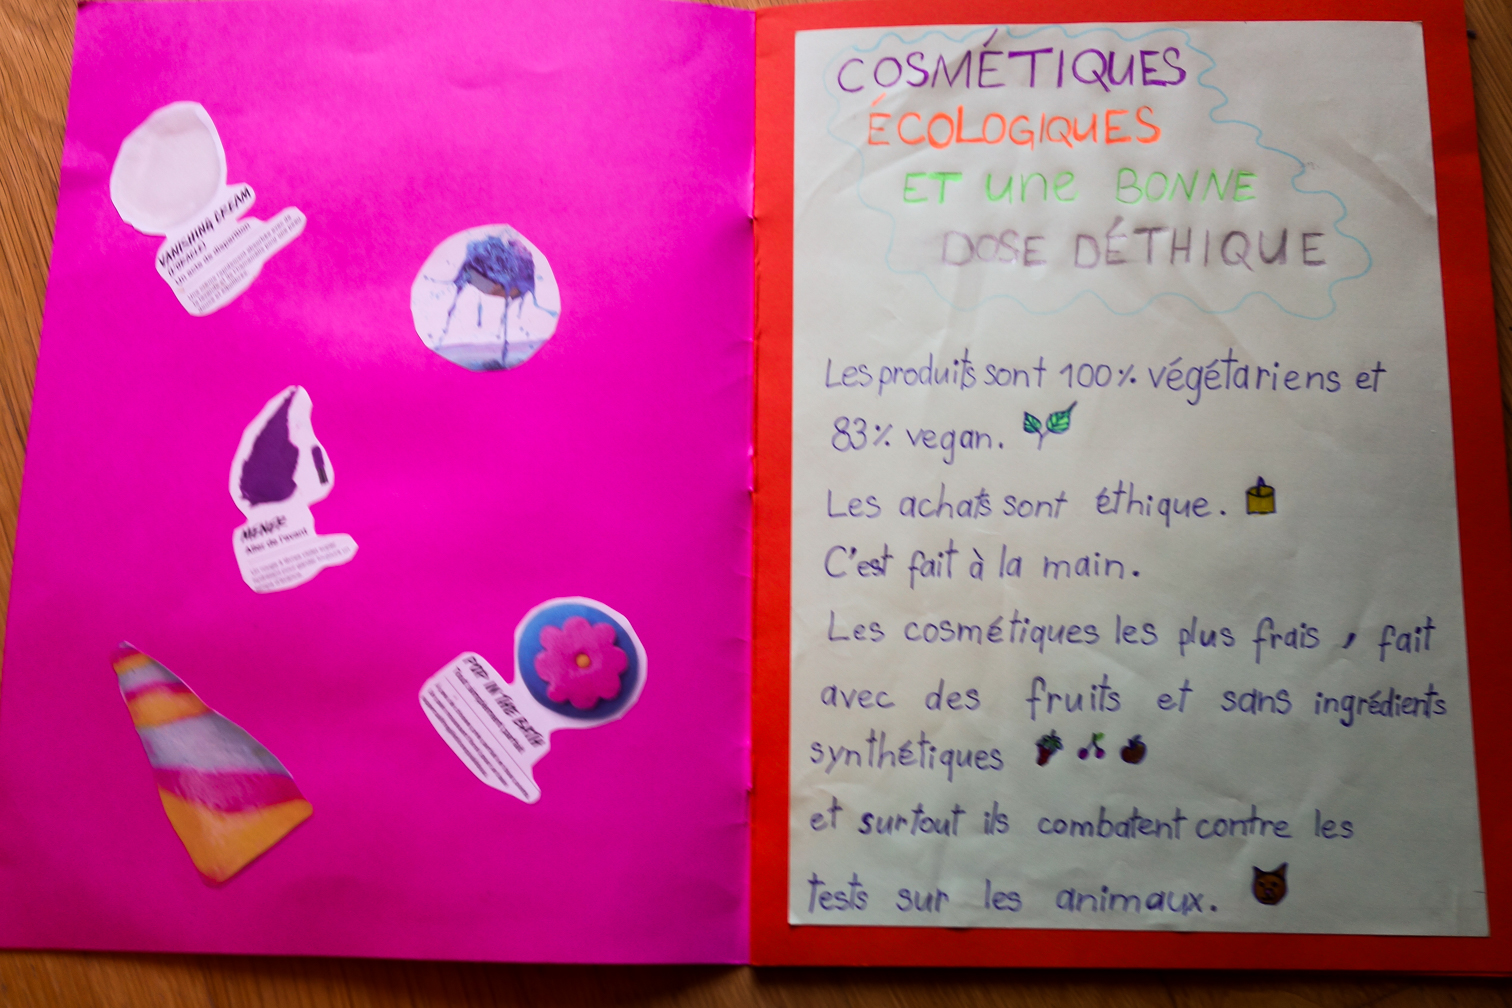 VANISHING CREAM
Un acte de disparition
Aller de l'avant
POP IN THE BATH
COSMÉTIQUES
ÉCOLOGIQUES
ET une BONNE
DOSE DÉTHIQUE
Les produits sont 100% végétariens et
83% vegan.
Les achats sont éthique.
C'est fait à la main.
Les cosmétiques les plus frais, fait
avec des fruits et sans ingrédients
synthétiques
et surtout ils combatent contre les
tests sur les animaux.